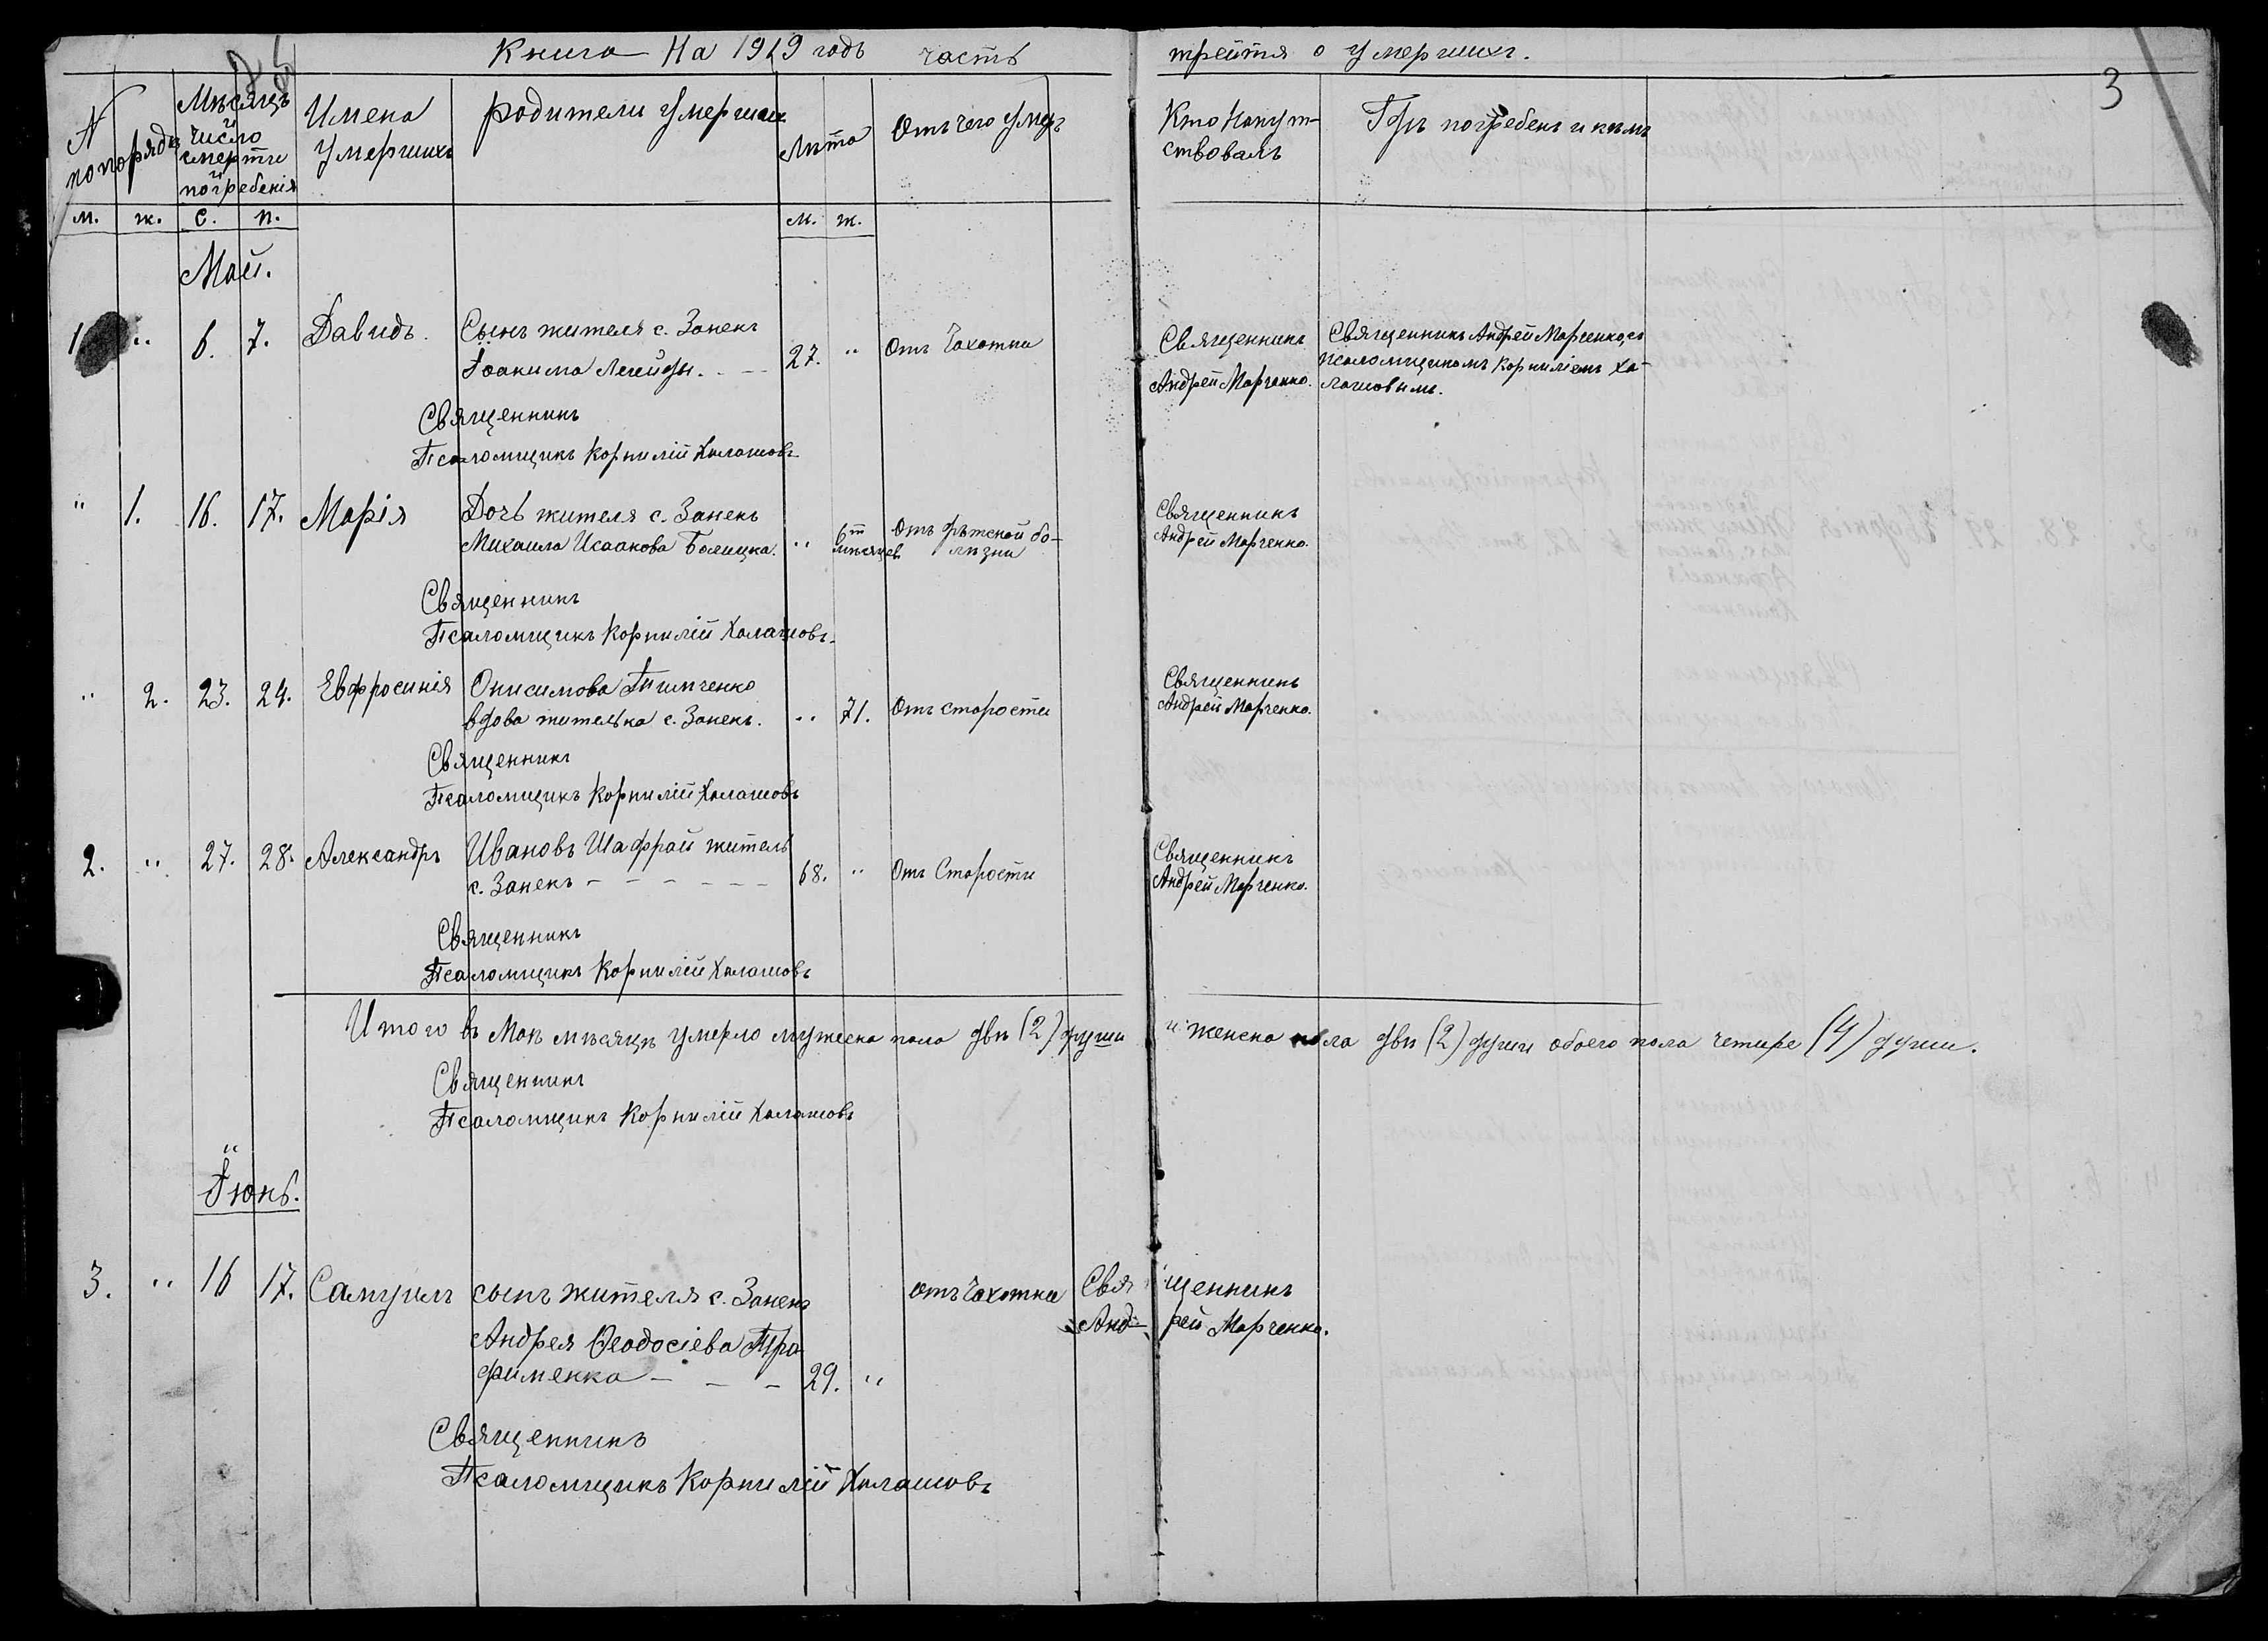 Книга На 1919 годъ часть третія о умершихъ.
3
N по порядъ
Мѣсяцъ и число смерти и погребенія
Имена умершихъ
родители умерших
Лѣта
Отъ чего умеръ
Кто Напут-
ствовалъ
Гдѣ погребенъ и кѣмъ
м. ж. с. п. м. ж.
Май.
1 " 6. 7. Давидъ. Сынъ жителя с. Занекъ
Іоакима Легейды. 27. " Отъ Чахотки
Священникъ
Андрей Марченко.
Священникъ Андрей Марченко съ
псаломщикомъ Корниліемъ Ха-
лашовымъ.
Священникъ
Псаломщикъ Корнилій Халашовъ
" 1. 16. 17. Марія Дочь жителя с. Занекъ
Михаила Исаакова Болицка. " 6т мѣсяцев Отъ дѣтской бо-
лѣзни
Священникъ
Андрей Марченко.
Священникъ
Псаломщикъ Корнилій Халашовъ
" 2. 23. 24. Евфросинія Онисимова Тимченко
вдова жителька с. Занекъ. " 71. Отъ старости
Священникъ
Андрей Марченко.
Священникъ
Псаломщикъ Корнилій Халашовъ
2. " 27. 28. Александръ Ивановъ Шафрай житель
с. Занекъ - - - - - - 68. " Отъ Старости
Священникъ
Андрей Марченко.
Священникъ
Псаломщикъ Корнилій Халашовъ
Итого въ Маѣ мѣсяцѣ умерло мужеска пола двѣ (2) души и женска пола двѣ (2) души обоего пола четыре (4) души.
Священникъ
Псаломщикъ Корнилій Халашовъ
Іюнь.
3. " 16 17. Самуилъ сынъ жителя с. Занекъ отъ Чахотки Священникъ
Андрея Ѳеодосіева Тро Андрей Марченко.
фименка - - - 29. "
Священникъ
Псаломщикъ Корнилій Халашовъ